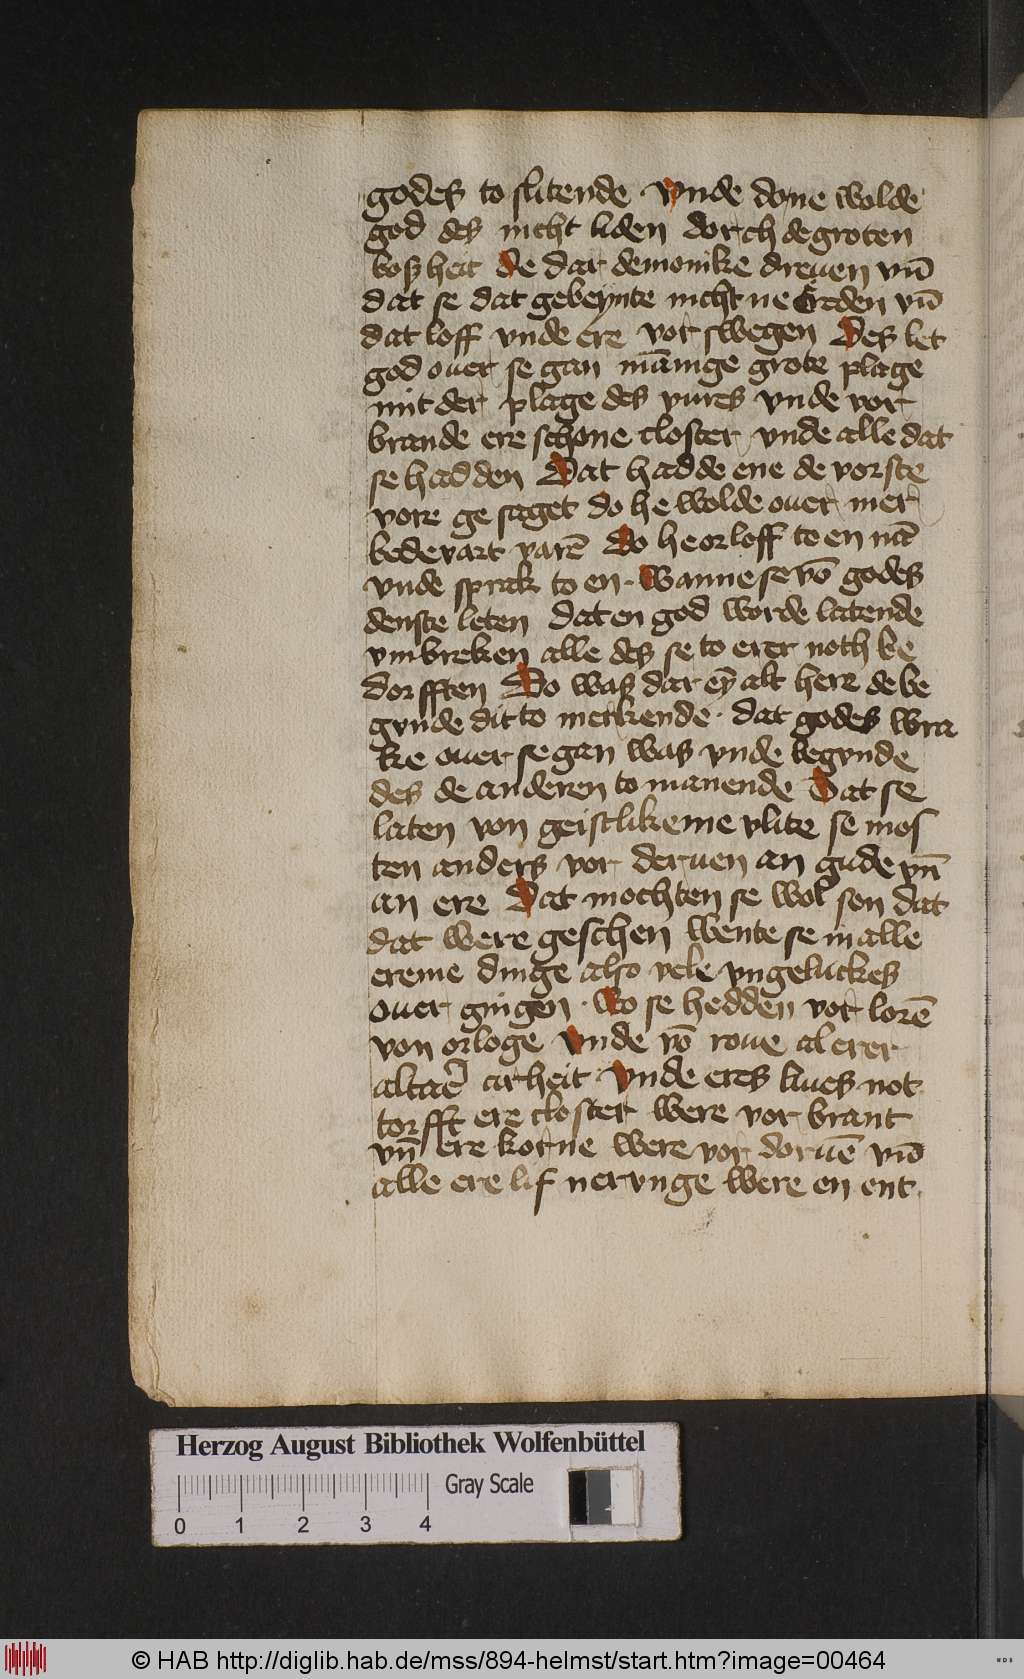 godes to slitende · vnde done wolde
god des nicht liden dorch de groten
bosheit de dar de monike dreuen vn̄
dat se dat gebeynte nicht ne Erden vn̄
dat loff vnde ere vor swegen Des let
god ouer se gan mānige grote plage
mit der plage des vures vnde vor
brande ere schone closter vnde alle dat
se hadden Dat hadde ene de vorste
vore ge saget do he wolde ouer mer
bedevart varē Do he orloff to en nā
vnde sprak to en · wanne se vō godes
denste leten dat en god worde latende
vmbreken alle des se to erer noth be
dorfften Do was dar eȳ alt here de be
gvnde dit to merkende · dat godes wra
ke ouer se gan was vnde begvnde
des de anderen to manende Dat se
laten von geistlikeme vlite se mos
ten anders vor deruen an gude vn̄
an ere Dat mochten se wol sen dat
dat were geschen wente se in alle
ereme dinge also vele vngeluckes
ouer gingen · wo se hedden vor lorē
von orloge vnde vō roue al erer
altaē arheit vnde eres liues not
torfft ere closter were vor brant
vn̄ ere korne were vor doruē vn̄
alle ere lif nervnge were en ent
Herzog August Bibliothek Wolfenbüttel
Gray Scale
0 1 2 3 4
© HAB http://diglib.hab.de/mss/894-helmst/start.htm?image=00464